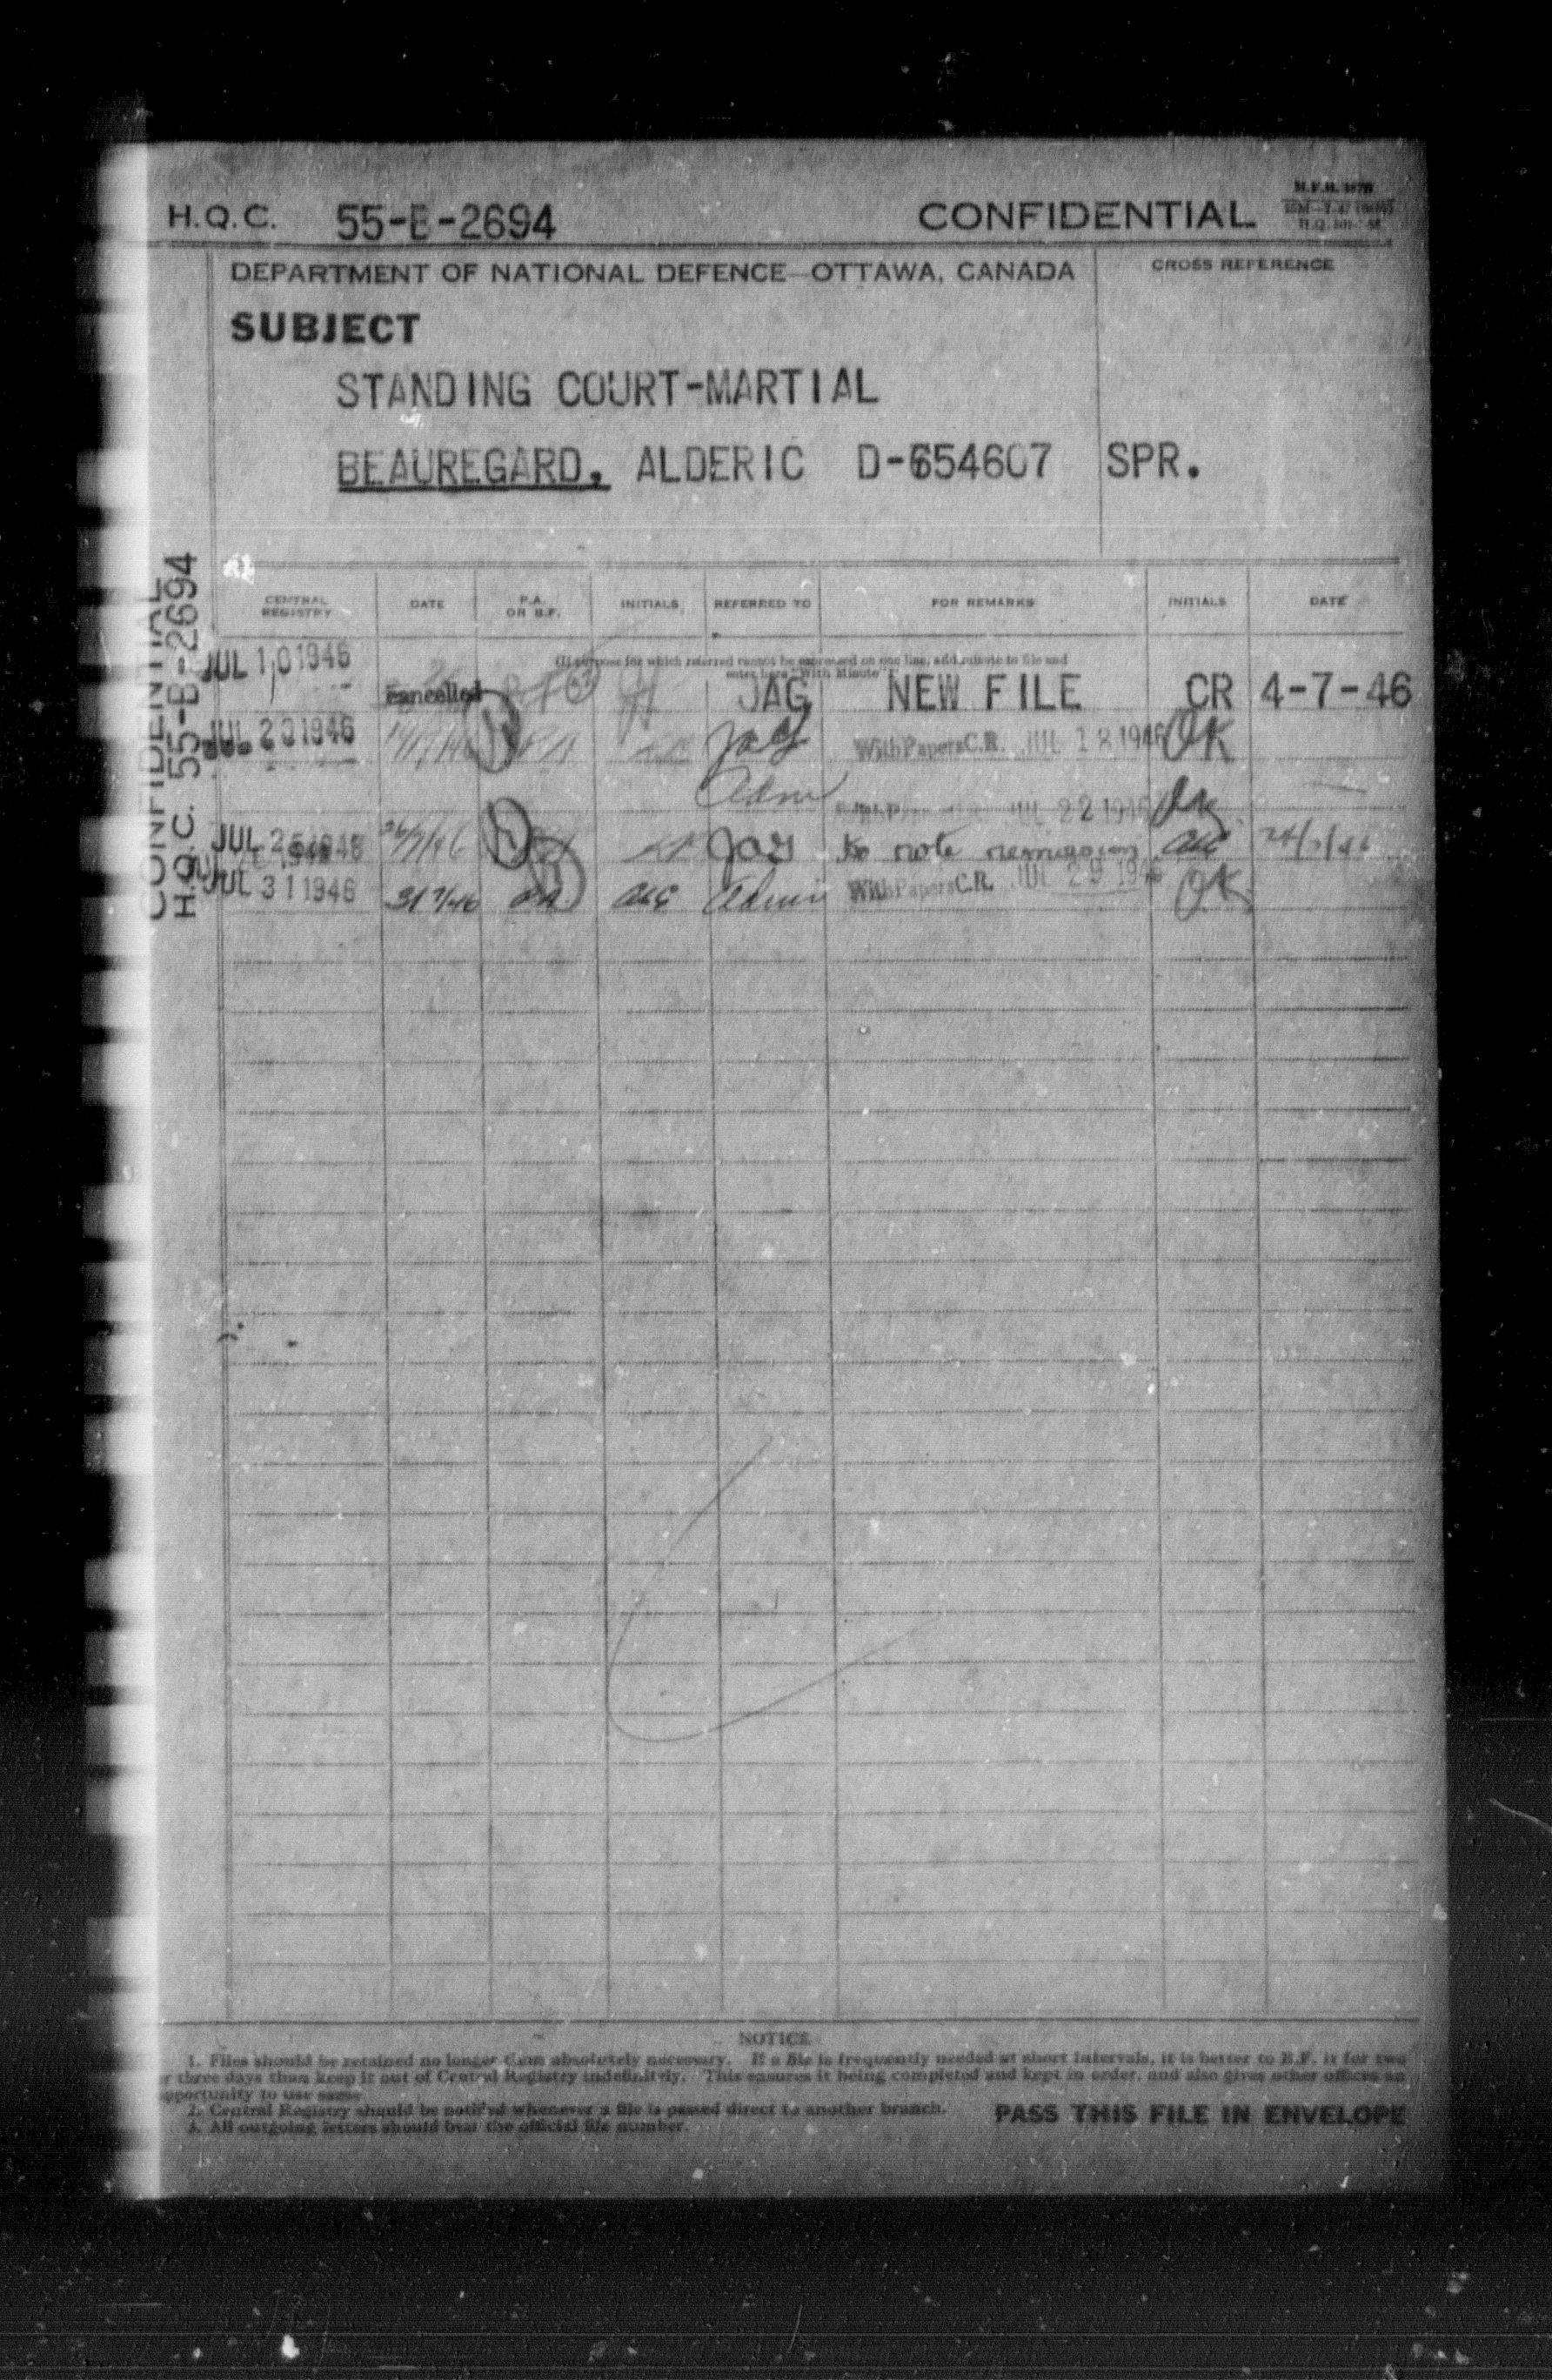 H.Q.C. 55-B-2694 CONFIDENTIAL
DEPARTMENT OF NATIONAL DEFENCE—OTTAWA, CANADA
CROSS REFERENCE
SUBJECT
STANDING COURT-MARTIAL
BEAUREGARD, ALDERIC D-654607 SPR.
CONFIDENTIAL
H.Q.C. 55-B-2694
CENTRAL REGISTRY DATE P.A. OR B.F. INITIALS REFERRED TO FOR REMARKS INITIALS DATE
(If purpose for which referred cannot be expressed on one line, add minute to file and
enter here "With Minute")
JUL 10 1946 cancelled JAG NEW FILE CR 4-7-46
JUL 20 1946 JAG With Papers C.R. JUL 18 1946 OK
Adm JUL 22 1946
JUL 25 1946 26/7/46 JAG to note remission
JUL 31 1946 31/7/46 PA Admin With Papers C.R. JUL 29 1946 OK
NOTICE
1. Files should be retained no longer than absolutely necessary. If a file is frequently needed at short intervals, it is better to B.F. it for two
or three days than keep it out of Central Registry indefinitely. This ensures it being completed and kept in order, and also gives other offices an
opportunity to use same
2. Central Registry should be notified whenever a file is passed direct to another branch.
3. All outgoing letters should bear the official file number.
PASS THIS FILE IN ENVELOPE